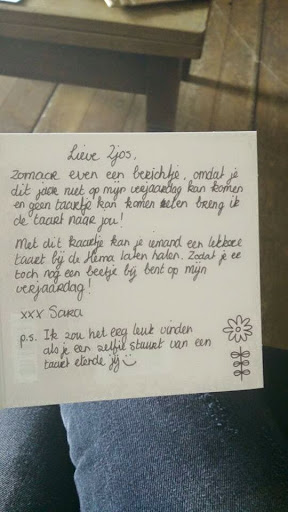 Lieve Zjos,
Zomaar even een berichtje, omdat je
dit jaar niet op mijn verjaardag kan komen
en geen taartje kan komen eten breng ik
de taart naar jou!
Met dit kaartje kan je iemand een lekkere
taart bij de Hema laten halen. Zodat je er
toch nog een beetje bij bent op mijn
verjaardag!
xxx Sara
p.s. Ik zou het eeg leuk vinden
als je een zelfie stuurt van een
taart etende jij